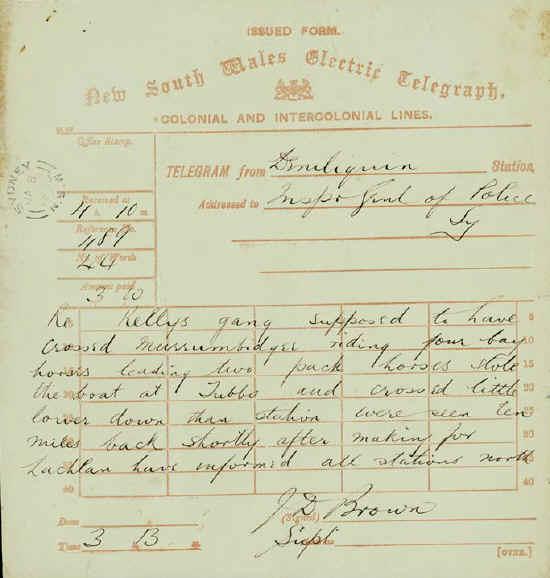 ISSUED FORM.
New South Wales Electric Telegraph.
COLONIAL AND INTERCOLONIAL LINES.
Office Stamp.
SYDNEY
TELEGRAM from Deniliquin Station,
Addressed to Inspr Genl of Police
Sy
Received at
4 h. 10 m
Reference No.
489
No. of Words
44
Amount paid
3 0
Re Kellys gang supposed to have
crossed Murrumbidgee riding four bay
horses leading two pack horses stole
the boat at Tubbo and crossed little
lower down than station were seen ten
miles back shortly after making for
Lachlan have informed all stations north
5
10
15
20
25
30
35
40
J D Brown
(Signed)
Supt
Date
Time 3 13
[OVER.]